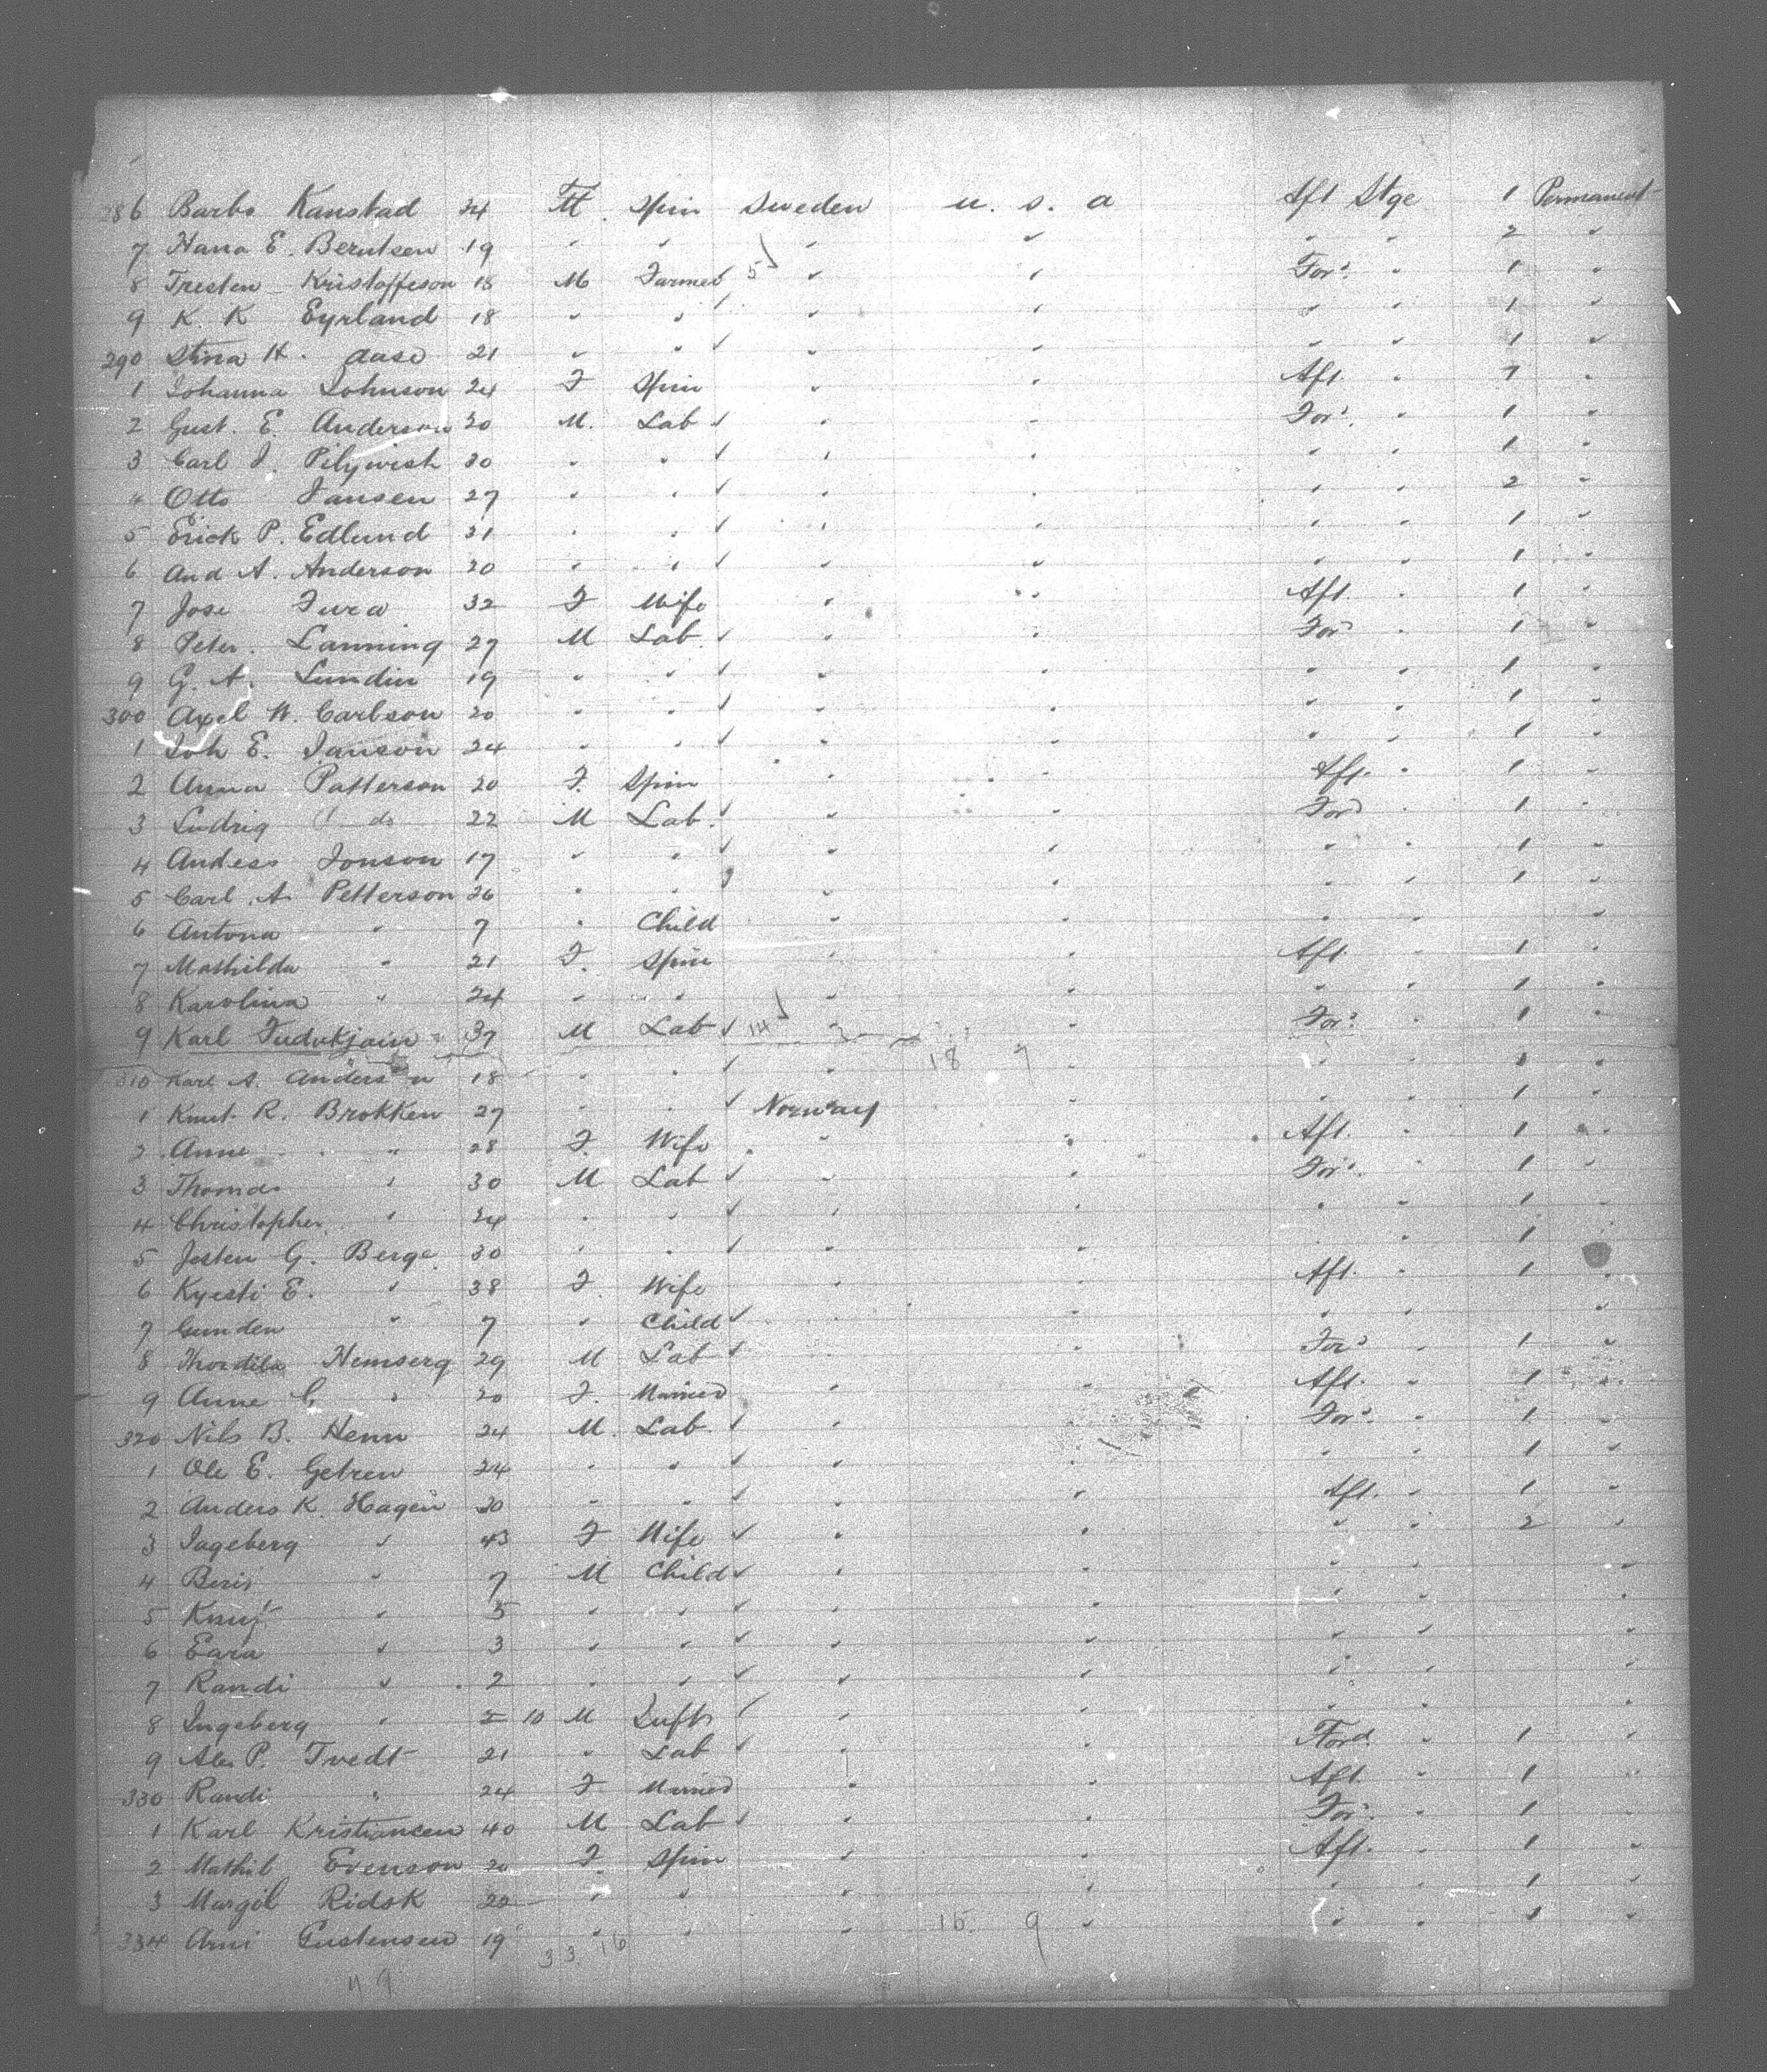 286 Barbo Kanstad 24 F Spin Sweden U. S. A Aft Stge 1 Permanent
7 Hana E. Berntsen 19 " " " " " " 2 "
8 Tresten Kristoffeson 18 M Farmer ✓ 5 " " For'd " 1 "
9 K. K Eyrland 18 " " ✓ " " " " 1 "
290 Stina H. Aase 21 " " ✓ " " " " 1 "
1 Johanna Johnson 24 F Spin " " Aft. " 1 "
2 Gust. E. Anderson 20 M. Lab ✓ " " For'd. " 1 "
3 Carl J. 30 " " ✓ " " " " 1 "
4 Otto Jansen 27 " " ✓ " " " " 2 "
5 Erick P. Edlund 31 " " ✓ " " " " 1 "
6 And A. Anderson 20 " " ✓ " " " " 1 "
7 Jose 32 F Wife " " Aft. " 1 "
8 Peter. Lanning 27 M Lab ✓ " " For'd " 1 "
9 G. A. Lundin 19 " " ✓ " " " " 1 "
300 Axel W. Carlson 20 " " ✓ " " " " 1 "
1 Joh E. Janson 24 " " ✓ " " " " 1 "
2 Anna Patterson 20 F. Spin " " Aft. " 1 "
3 Ludvig do 22 M Lab. ✓ " " For'd " 1 "
4 Andess Jonson 17 " " ✓ " " " " 1 "
5 Carl A. Petterson 26 " " " " " " 1 "
6 Antona " 7 " Child " " " " "
7 Mathilda " 21 F. Spin " " Aft. " 1 "
8 Karolina " 24 " " " " " " 1 "
9 Karl 37 M Lab ✓ 14 " " For'd " 1 "
18 7
310 Karl A. Anderson 18 " " ✓ " " " " 1 "
1 Knut R. Brokken 27 " " ✓ Norway " " " 1 "
2 Anne " 28 F. Wife " " Aft. " 1 "
3 Thomas " 30 M Lab ✓ " " For'd. " 1 "
4 Christopher " 24 " " ✓ " " " " 1 "
5 Josten G. Berge 30 " " ✓ " " " " 1
6 Kyesti E. " 38 F. Wife " " Aft. " 1 "
7 Gunden " 7 " Child ✓ " " " " "
8 Hemserg 29 M Lab ✓ For'd " 1 "
9 Anne G. " 20 F. Married " " Aft. " 1 "
320 Nils B. Henn 24 M. Lab. ✓ " " For'd. " 1 "
1 Ole E. Getren 24 " " ✓ " " " 1 "
2 Anders K. Hagen 30 " " ✓ " " Aft. " 1 "
3 Ingeberg " 43 F Wife ✓ " " " " 2 "
4 Beris " 7 M Child ✓ " " " " "
5 Knut " 5 " " ✓ " " " " "
6 Eara " 3 " " ✓ " " " " "
7 Randi " 2 " " ✓ " " " " "
8 Ingeberg " 10 M ✓ " " " " "
9 P. Tvedt 21 " Lab ✓ " " Ford. " 1 "
330 Randi " 24 F Married " " Aft " 1 "
1 Karl Kristiansen 40 M Lab ✓ " " For'd. " 1 "
2 Mathil Evenson 20 F. Spin " " Aft. " 1 "
3 Margit Ridsk 22 " " " " " " 1 "
334 Arni Gustensen 19 " " " 15 9 " " " 1 "
33 16
49